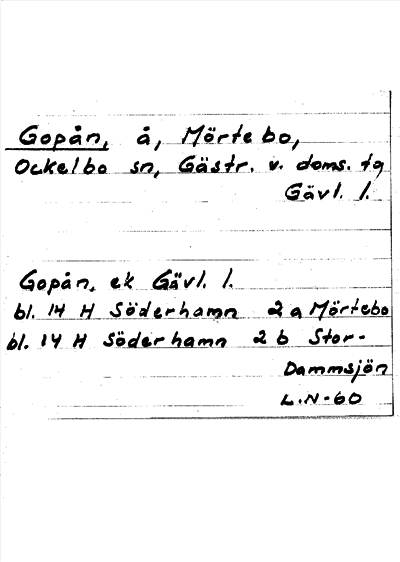 Gopån, å, Mörtebo,
Ockelbo sn, Gästr. v. doms. tg
Gävl. l.
Gopån, ek Gävl. l.
bl. 14 H Söderhamn 2 a Mörtebo
bl. 14 H Söderhamn 2 b Stor-
Dammsjön
L.N-60